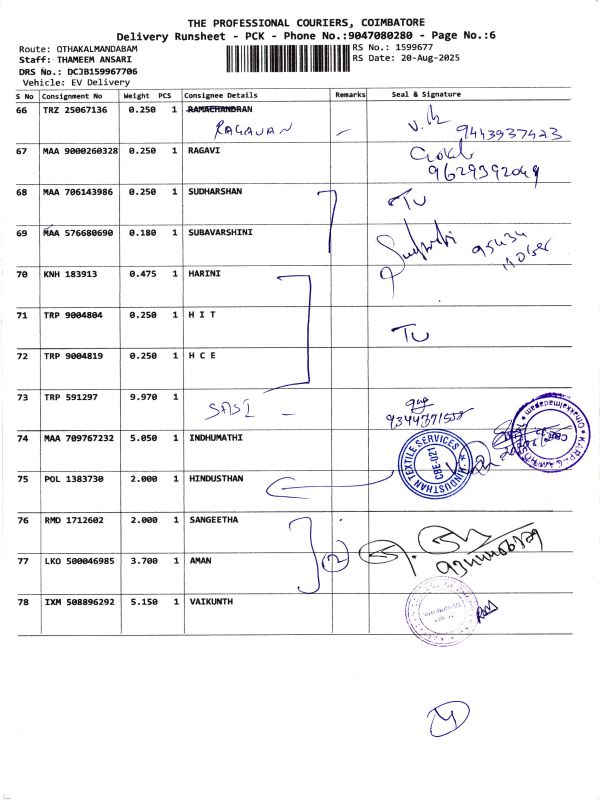 THE PROFESSIONAL COURIERS, COIMBATORE
Delivery Runsheet - PCK - Phone No.:9047080280 - Page No.:6
Route: OTHAKALMANDABAM
RS No.: 1599677
Staff: THAMEEM ANSARI
RS Date: 20-Aug-2025
DRS No.: DCJB159967706
Vehicle: EV Delivery
S No Consignment No Weight PCS Consignee Details Remarks Seal & Signature
66 TRZ 25067136 0.250 1 RAMACHANDRAN
RAGAVAN 9443937423
67 MAA 9000260328 0.250 1 RAGAVI
9629392049
68 MAA 706143986 0.250 1 SUDHARSHAN
69 MAA 576680690 0.180 1 SUBAVARSHINI
70 KNH 183913 0.475 1 HARINI
71 TRP 9004804 0.250 1 H I T
72 TRP 9004819 0.250 1 H C E
73 TRP 591297 9.970 1
SASI
74 MAA 709767232 5.050 1 INDHUMATHI
HINDUSTHAN TEXTILE SERVICES
CBE-021
75 POL 1383730 2.000 1 HINDUSTHAN
76 RMD 1712602 2.000 1 SANGEETHA
2
77 LKO 500046985 3.700 1 AMAN
78 IXM 508896292 5.150 1 VAIKUNTH